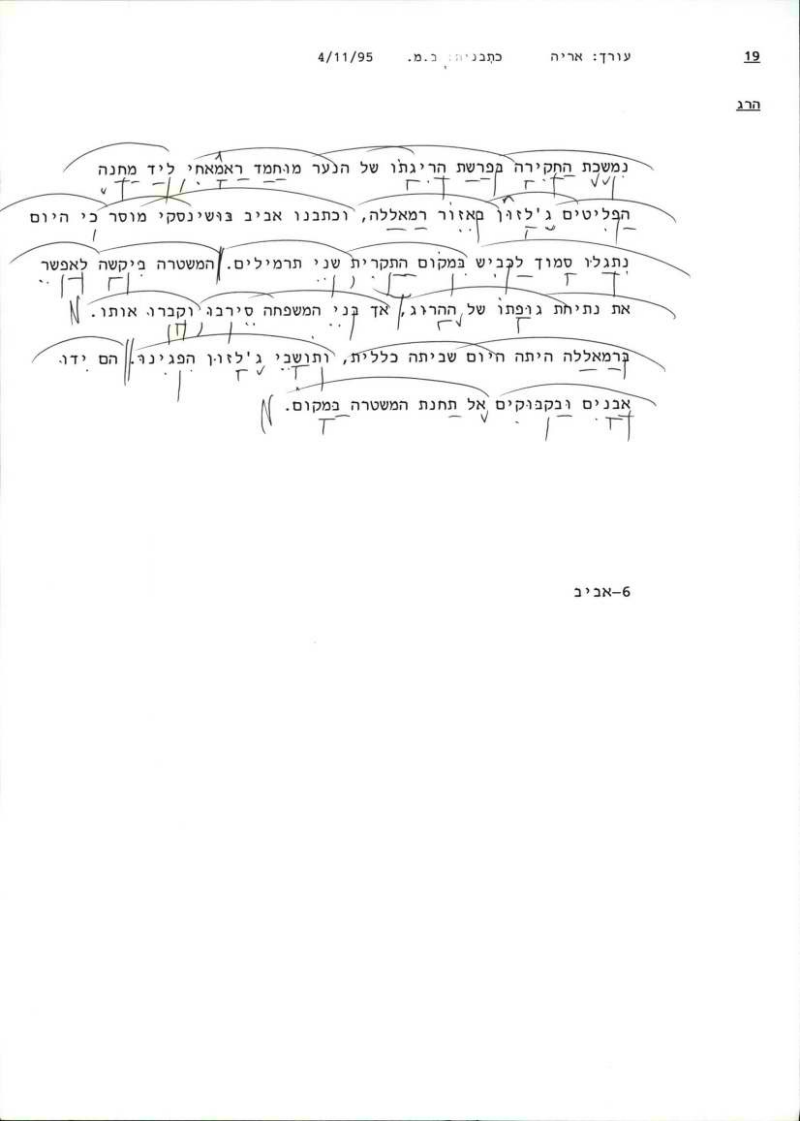 19 עורך: אריה כתבנית: ב.מ. 4/11/95
הרג
נמשכת החקירה בפרשת הריגתו של הנער מוחמד ראמאחי ליד מחנה
הפליטים ג'לזון באזור רמאללה, וכתבנו אביב בושינסקי מוסר כי היום
נתגלו סמוך לכביש במקום התקרית שני תרמילים. המשטרה ביקשה לאפשר
את נתיחת גופתו של ההרוג, אך בני המשפחה סירבו וקברו אותו.
ברמאללה היתה היום שביתה כללית, ותושבי ג'לזון הפגינו. הם ידו
אבנים ובקבוקים אל תחנת המשטרה במקום.
6-אביב